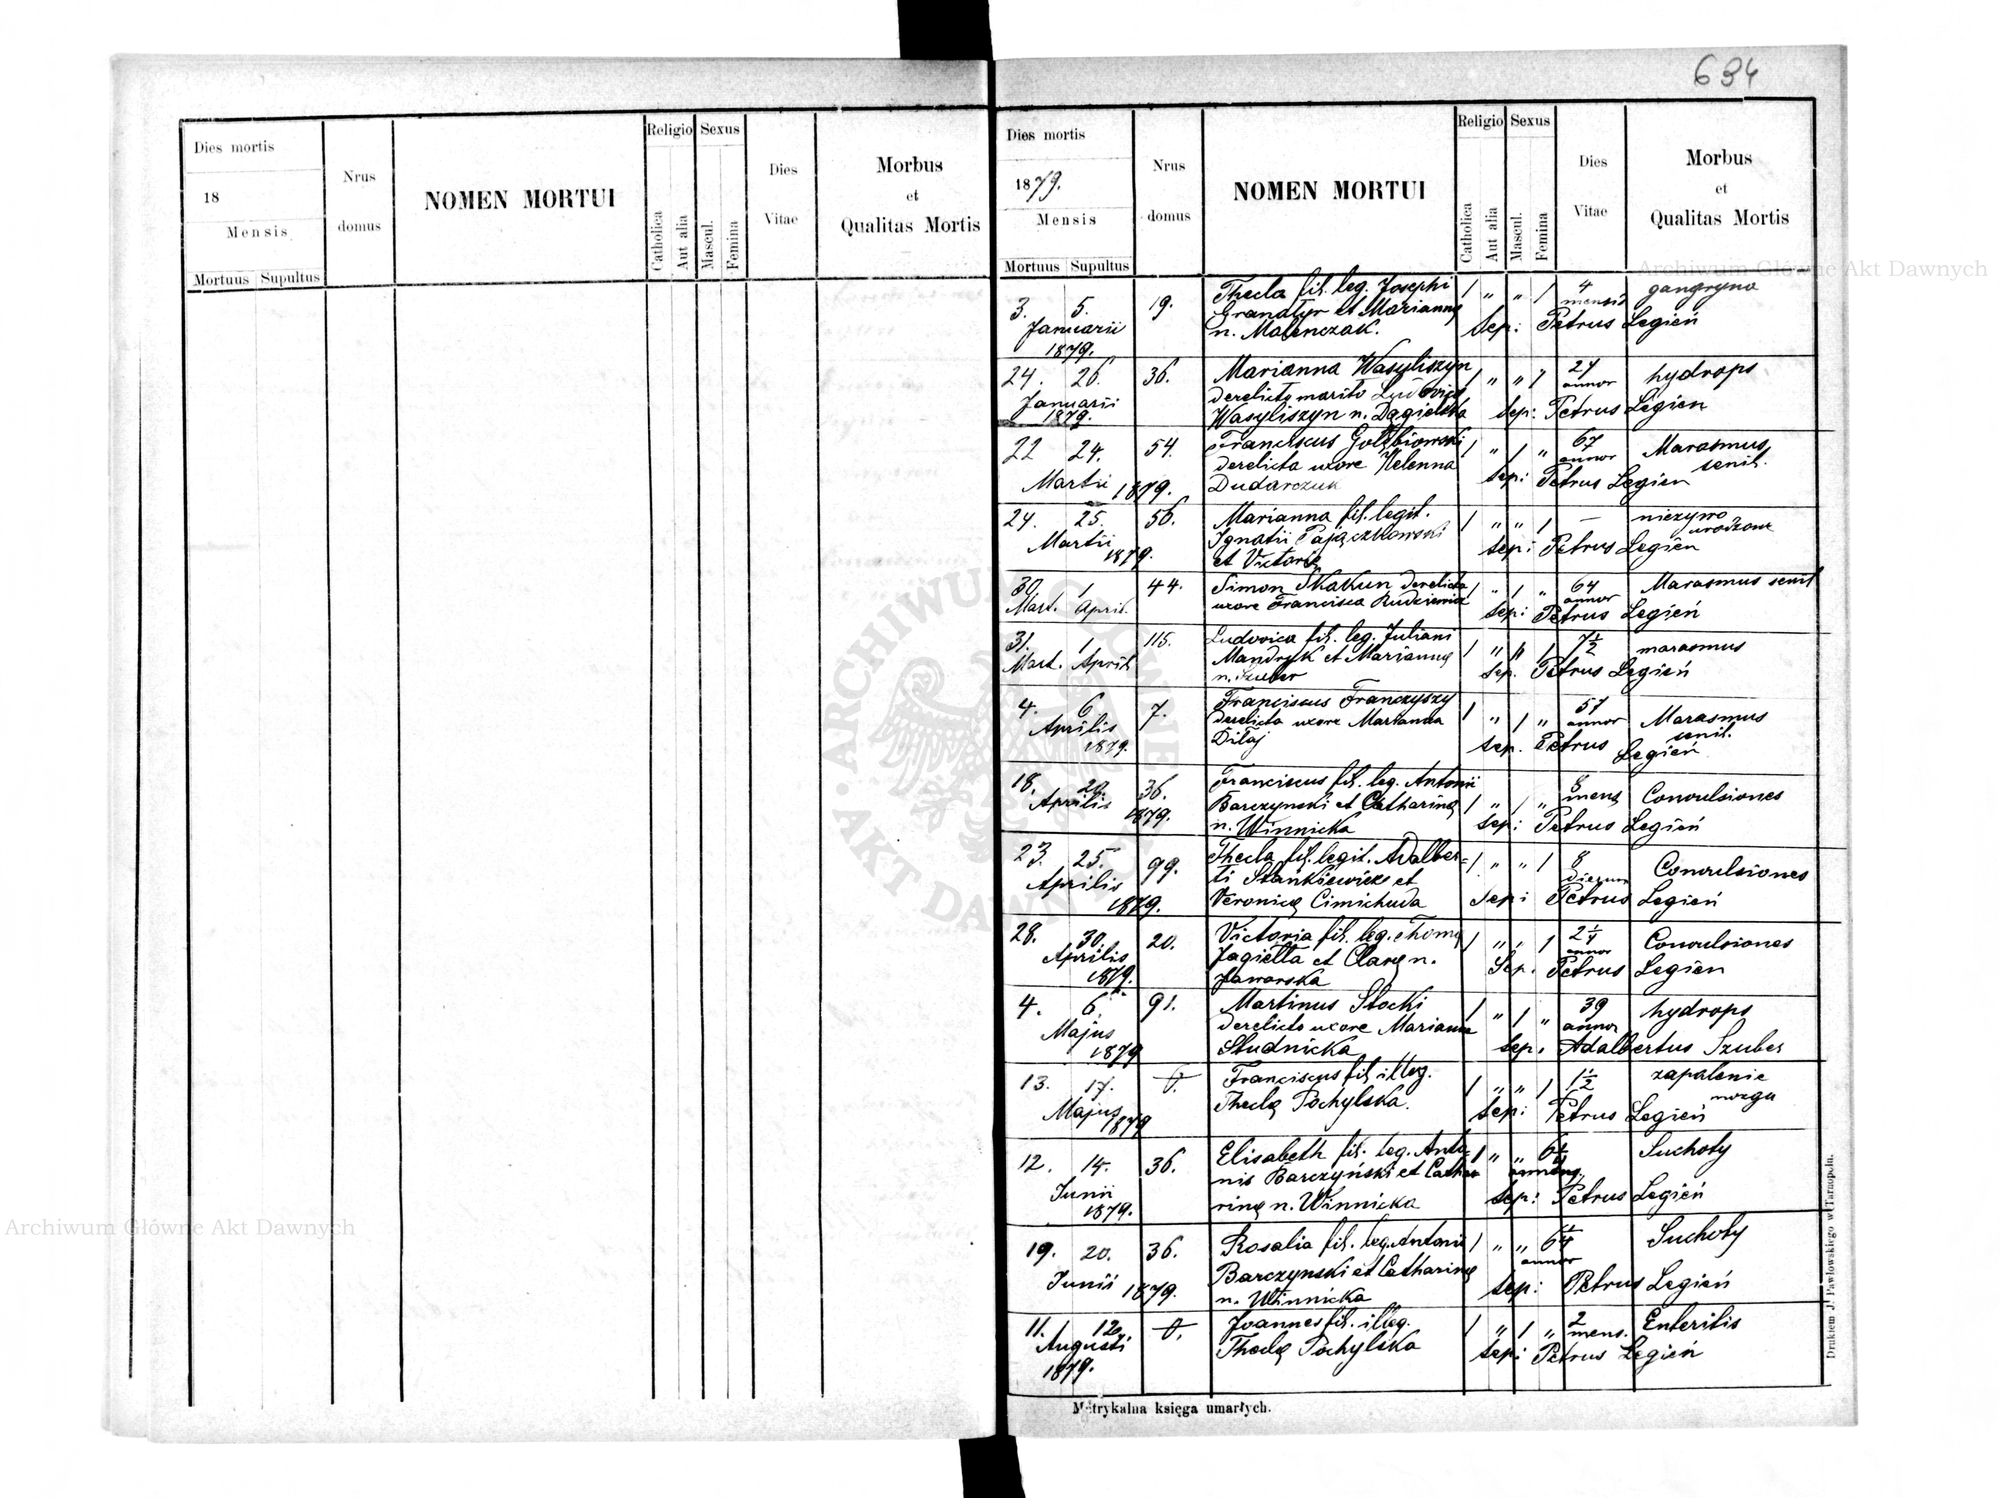 634
Dies mortis
18
Mensis
Mortuus Supultus
Nrus
domus
NOMEN MORTUI
Religio
Catholica
Aut alia
Sexus
Mascul.
Femina
Dies
Vitae
Morbus
et
Qualitas Mortis
Dies mortis
1879.
Mensis
Mortuus Supultus
Nrus
domus
NOMEN MORTUI
Religio
Catholica
Aut alia
Sexus
Mascul.
Femina
Dies
Vitae
Morbus
et
Qualitas Mortis
3. 5. 19. Thecla fil. leg. Josephi / " " / 4 gangryna
Januarii et Mariannę mensis
1879. n. Malenczak. Sep: Petrus Legień
24. 26. 36. Marianna Wasyliszyn / " " / 24 hydrops
Januarii derelicto marito annor
1879. Wasyliszyn n. Sep: Petrus Legien
22 24. 54. Franciscus Gołębiowski / " / " 67 Marasmus
derelicta uxore Helenna annor senil.
Martii 1879. Dudarczuk Sep: Petrus Legien
24. 25. 56. Marianna fil. legit. / " " / — nieżywo
Martii Ignatii Pajączkowski urodzone
1879. et Victorię Sep: Petrus Legien
30 1 44. Simon Skakun derelicta / " / " 64 Marasmus senil
Mart. April. uxore Francisca annor
Sep: Petrus Legień
31. 1 115. Ludovica fil. leg. Juliani / " " / 7½ marasmus
Mart. April. Mandryk et Mariannę
n. Szuber Sep. Petrus Legień
4. 6 7. Franciscus Franczyszy / " / " 57 Marasmus
Aprilis derelicta uxore Marianna annor senil.
1879. Diłaj Sep. Petrus Legień
18. 20. 36. Franciscus fil. leg. Antonii / " / " 8 Convulsiones
Aprilis Barczynski et Catharinę mens
1879. n. Winnicka Sep: Petrus Legień
23. 25. 99. Thecla fil. legit. Adalber= / " " / 8 Convulsiones
Aprilis ti Stankiewicz et dierum
1879. Veronicę Cimichuda Sep: Petrus Legień
28. 30. 20. Victoria fil. leg. Thomę / " " / 2¼ Convulsiones
Aprilis Jagiełła et Clarę n. annor
1879. Jaworska Sep. Petrus Legien
4. 6. 91. Martinus Stocki / " / " 39 hydrops
Majus derelicto uxore Marianna annor
1879 Studnicka Sep. Adalbertus Szuber
13. 17. 0. Franciscus fil. illeg. / " " / 1½ zapalenie
Majus Theclę Pochylska. mozgu
1879 Sep: Petrus Legień
12. 14. 36. Elisabeth fil. leg. Anto= / " " 6¼ Suchoty
Junii nis Barczyński et Catha
1879. rinę n. Winnicka Sep: Petrus Legień
19. 20. 36. Rosalia fil. leg. Antonii / " " 6¼ Suchoty
Junii Barczynski et Catharinę annor
1879. n. Winnicka Sep: Petrus Legień
11. 12. 0. Joannes fil. illeg. / " / " 2 Enteritis
Augusti Theclę Pochylska mens.
1879. Sep: Petrus Legień
Metrykalna księga umarłych.
Drukiem J. Pawłowskiego w Tarnopolu.
Archiwum Główne Akt Dawnych
Archiwum Główne Akt Dawnych
ARCHIWUM GŁÓWNE • AKT DAWNYCH •